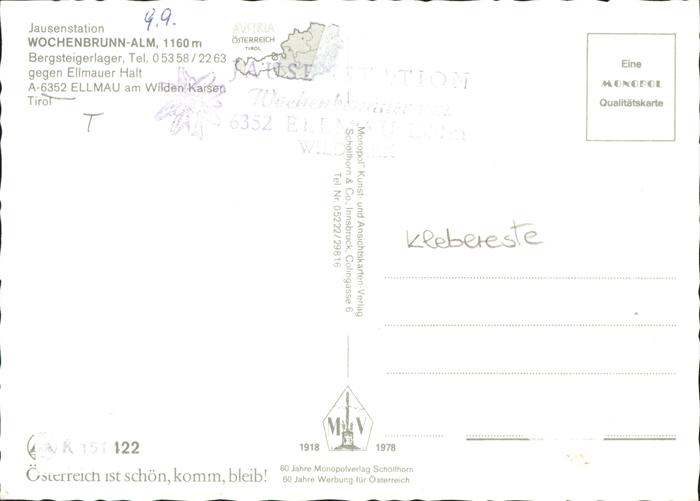 9.9.
Jausenstation
WOCHENBRUNN-ALM, 1160 m
Bergsteigerlager, Tel. 0 53 58 / 22 63
gegen Ellmauer Halt
A-6352 ELLMAU am Wilden Kaiser
Tirol
T
AUSTRIA
ÖSTERREICH
TIROL
JAUSENSTATION
6352 ELLMAU
WILD
Eine
MONOPOL
Qualitätskarte
„Monopol" Kunst- und Ansichtskarten-Verlag
Schöllhorn & Co., Innsbruck, Colingasse 6
Tel. Nr. 05222/29816
Klebereste
M V
1918 1978
K 151 422
Österreich ist schön, komm, bleib!
60 Jahre Monopolverlag Schöllhorn
60 Jahre Werbung für Österreich